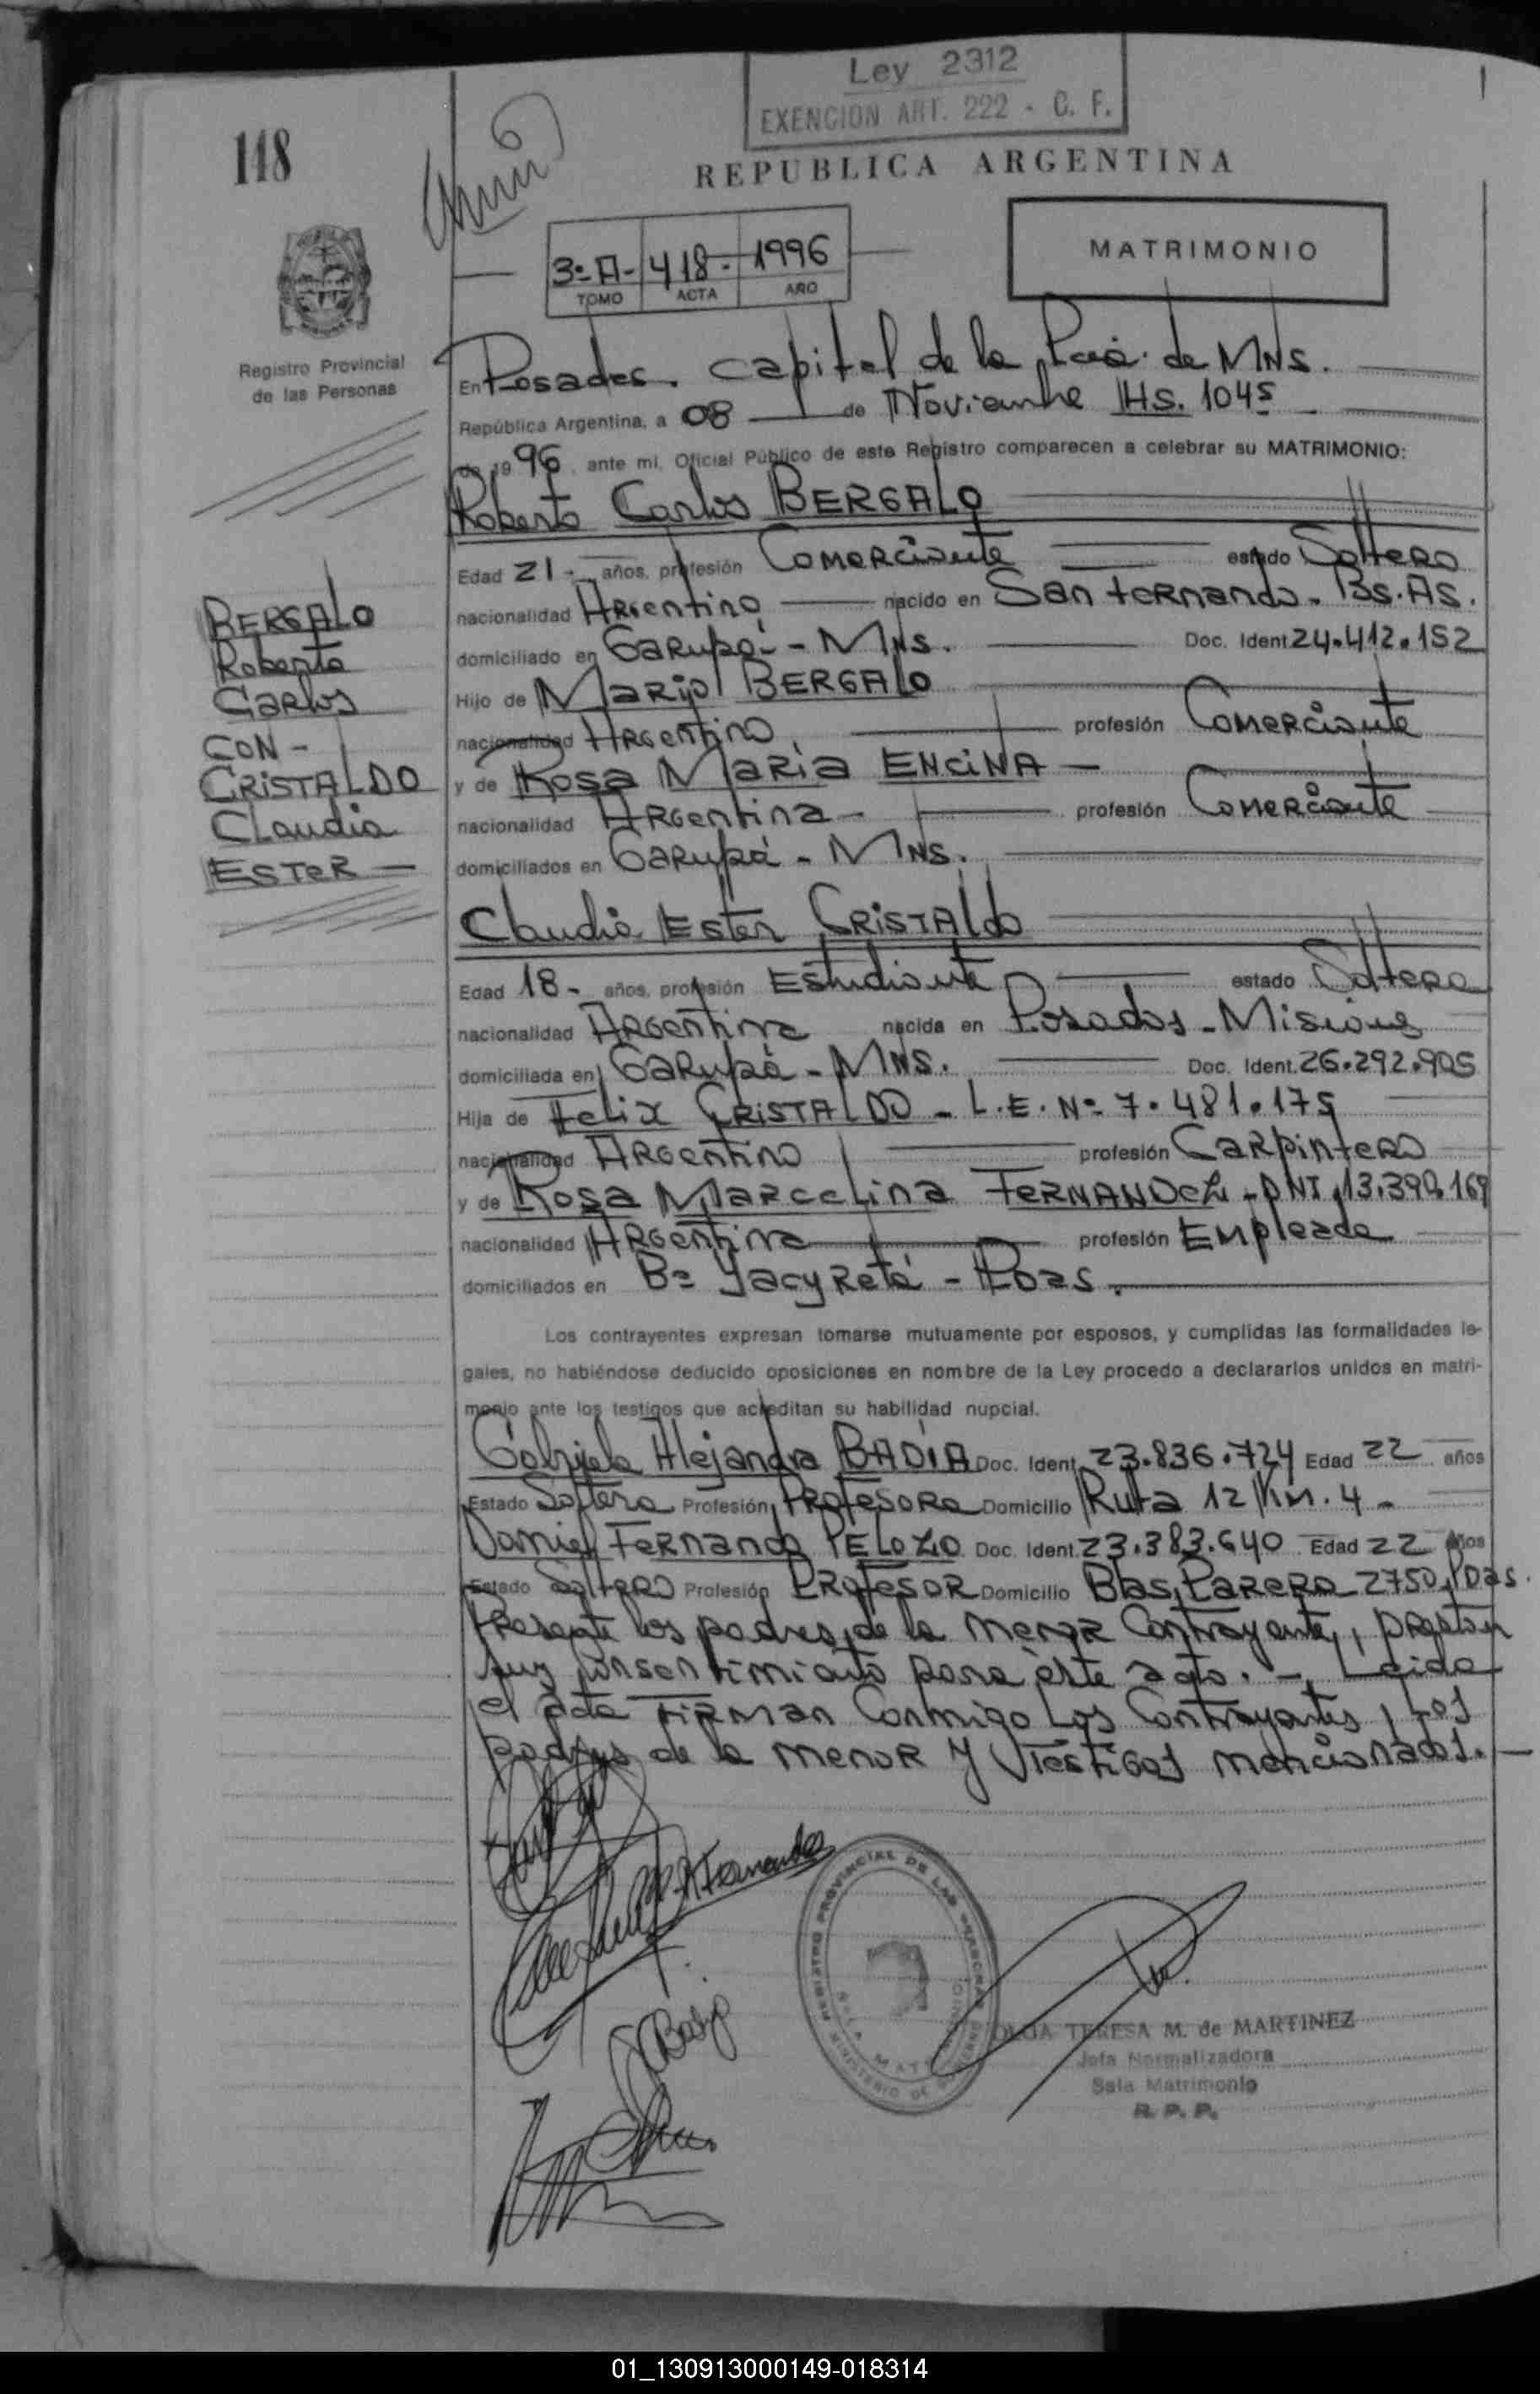 Ley 2312
EXENCION ART. 222 - C. F.
118
REPUBLICA ARGENTINA
3º A - 418 - 1996
TOMO ACTA AÑO
MATRIMONIO
Registro Provincial
de las Personas
En Posadas. Capital de la Pcia. de MNS.
República Argentina, a 08 de Noviembre Hs. 1045
de 1996, ante mi, Oficial Público de este Registro comparecen a celebrar su MATRIMONIO:
Roberto Carlos BERGALO
Edad 21 - años, profesión Comerciante estado Soltero
nacionalidad Argentino nacido en San Fernando - Bs. As.
domiciliado en Garupá - MNS. Doc. Ident 24.412.152
Hijo de Mario BERGALO
nacionalidad Argentino profesión Comerciante
y de Rosa Maria ENCINA -
nacionalidad Argentina - profesión Comerciante
domiciliados en Garupá - MNS.
BERGALO
Roberto
Carlos
CON -
CRISTALDO
Claudia
ESTER -
Claudia Ester CRISTALDO
Edad 18 - años, profesión Estudiante estado Soltera
nacionalidad Argentina nacida en Posadas - Misiones
domiciliada en Garupá - MNS. Doc. Ident. 26.292.905
Hija de Felix CRISTALDO - L.E. Nº 7.481.175
nacionalidad Argentino profesión Carpintero
y de Rosa Marcelina FERNANDEZ - DNI. 13.390.169
nacionalidad Argentina profesión Empleada
domiciliados en Bº Yacyretá - Pdas.
Los contrayentes expresan tomarse mutuamente por esposos, y cumplidas las formalidades le-
gales, no habiéndose deducido oposiciones en nombre de la Ley procedo a declararlos unidos en matri-
monio ante los testigos que acreditan su habilidad nupcial.
Gabriela Alejandra BADÍA Doc. Ident. 23.836.724 Edad 22 años
Estado Soltera Profesión Profesora Domicilio Ruta 12 Km. 4 -
Daniel Fernando PELOZO Doc. Ident. 23.383.640 Edad 22 años
Estado Soltero Profesión Profesor Domicilio Blas Parera 2750, Pdas.
Presente los padres de la menor Contrayente, prestan
sus consentimiento para éste acto. - Leida
el acta Firman Conmigo Los Contrayentes, Los
padres de la menor y Testigos mencionados. -
REGISTRO PROVINCIAL DE LAS PERSONAS
OLGA TERESA M. de MARTINEZ
Jefa Normalizadora
Sala Matrimonio
R. P. P.
01_130913000149-018314